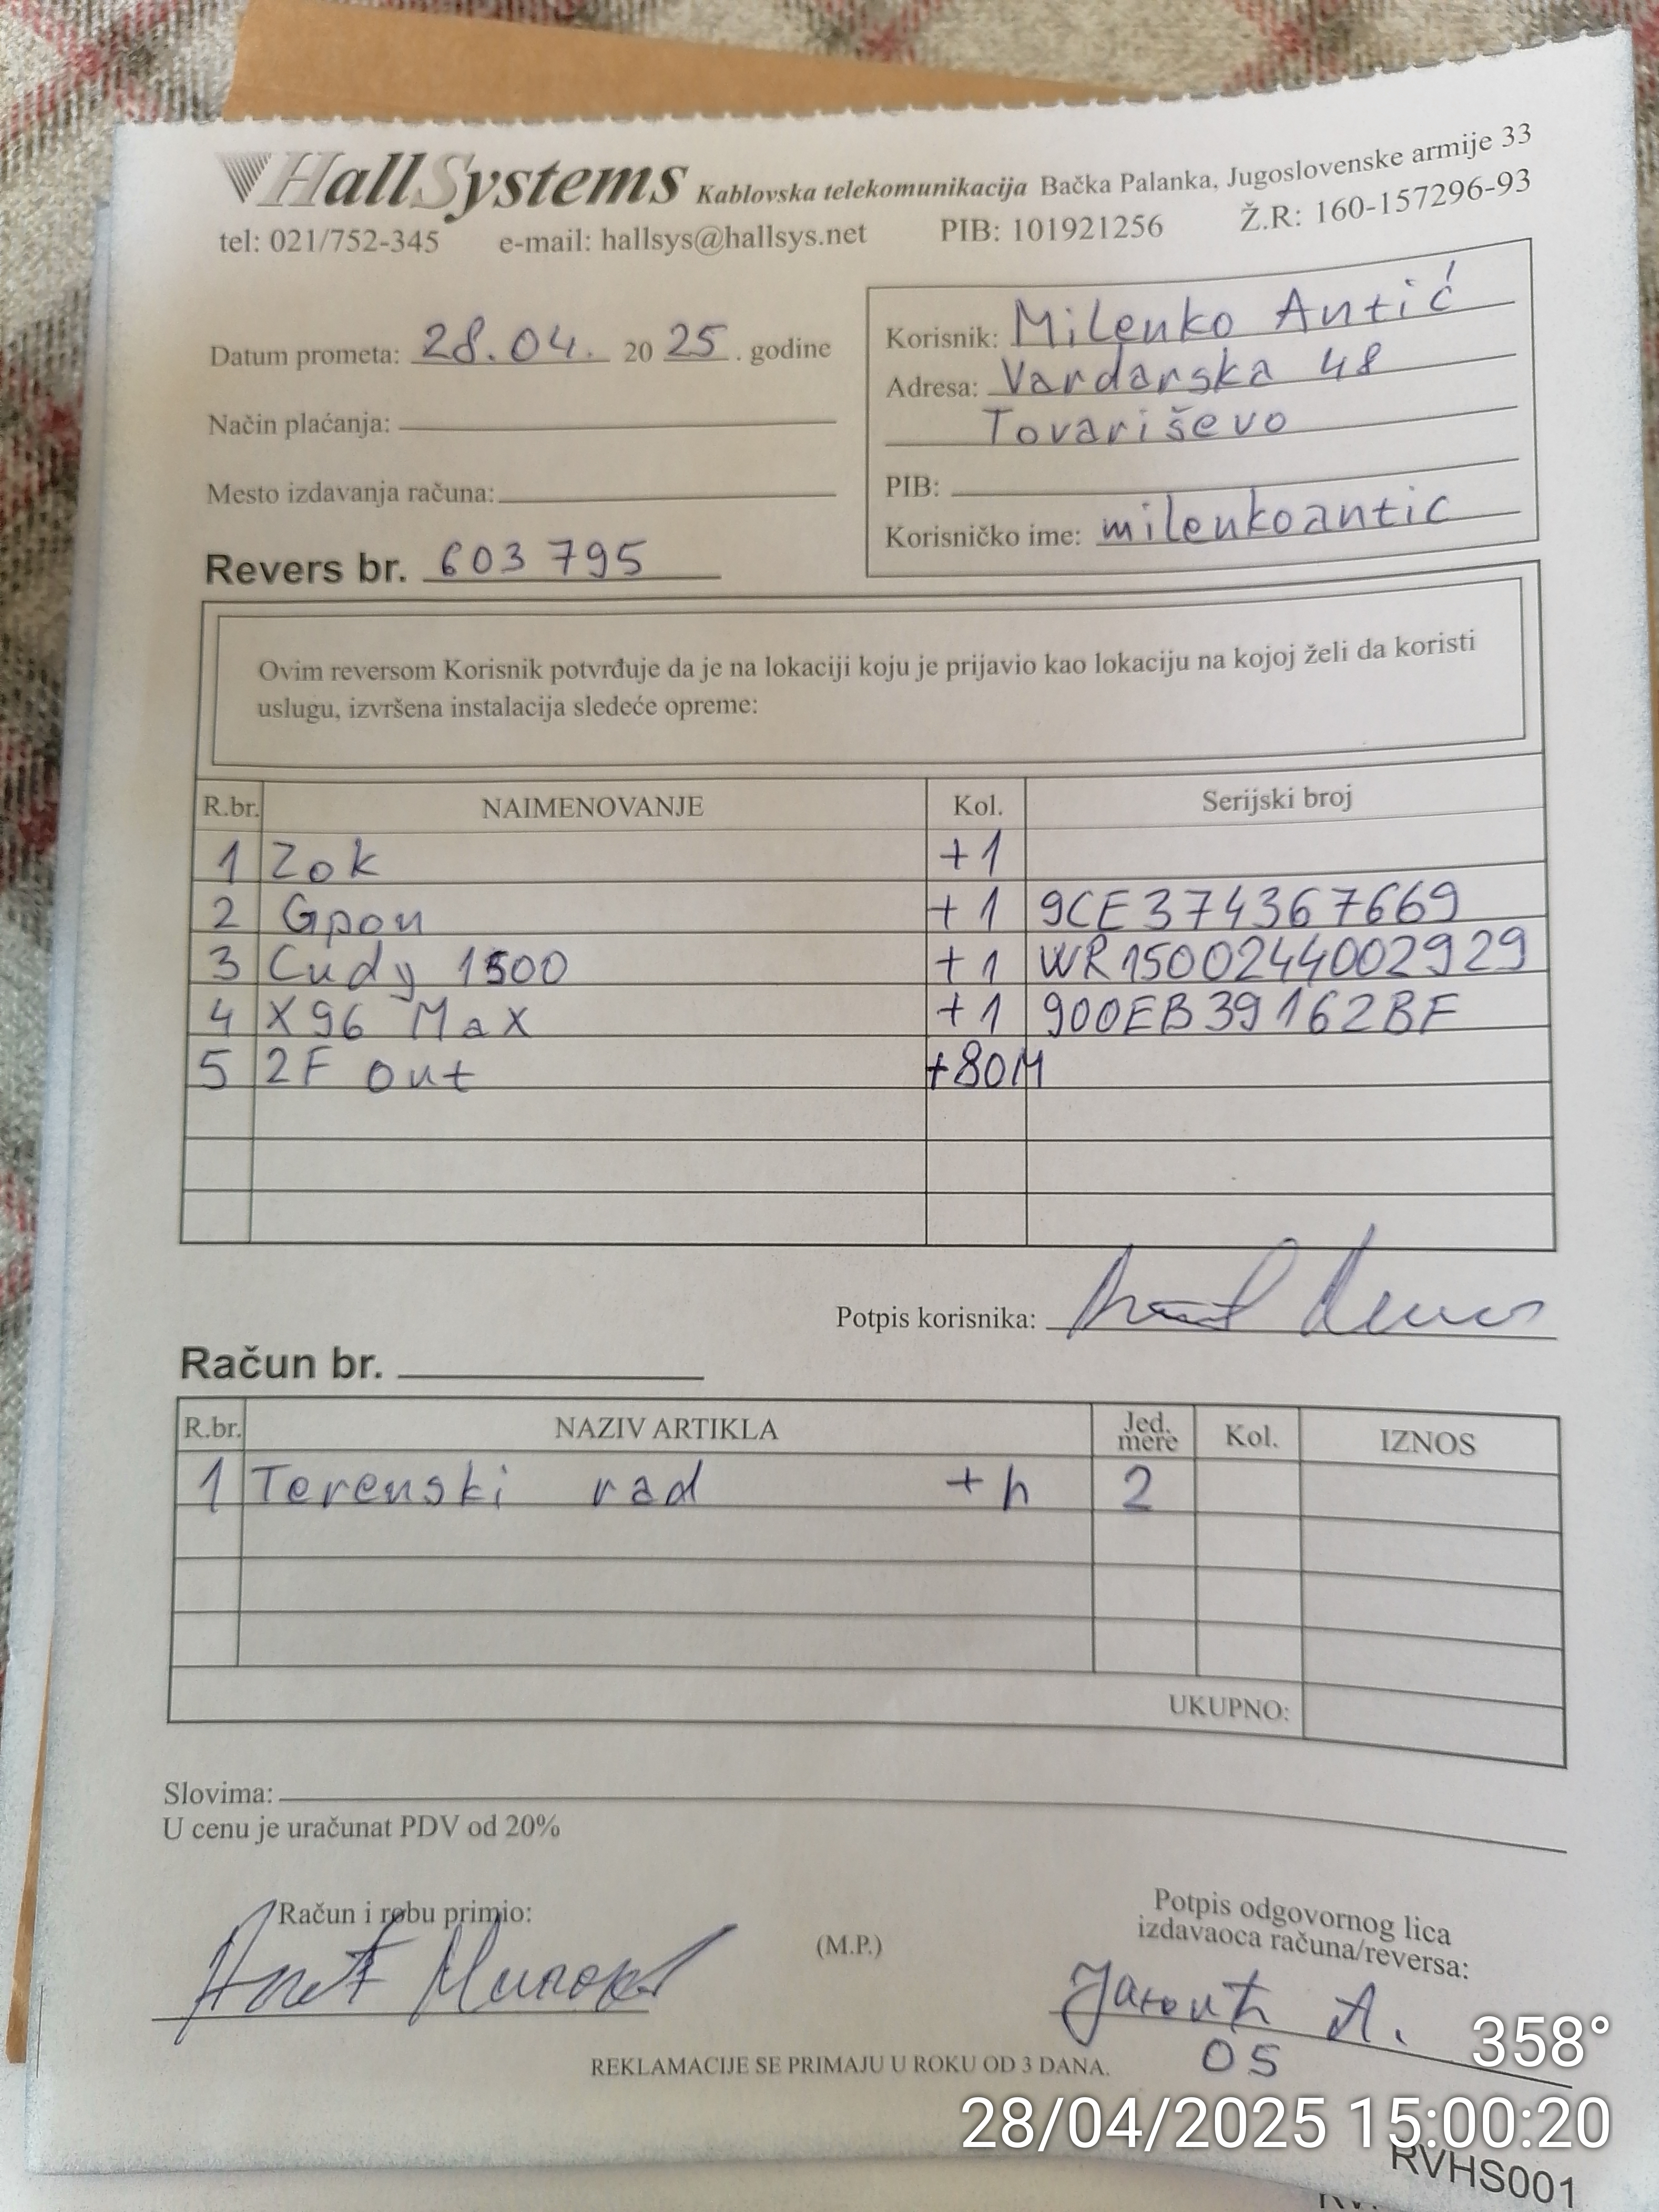 HallSystems Kablovska telekomunikacija Bačka Palanka, Jugoslovenske armije 33
tel: 021/752-345 e-mail: hallsys@hallsys.net PIB: 101921256 Ž.R: 160-157296-93
Datum prometa: 28.04. 20 25 . godine
Način plaćanja:
Mesto izdavanja računa:
Revers br. 603 795
Korisnik: Milenko Antić
Adresa: Vardarska 48
Tovariševo
PIB:
Korisničko ime: milenkoantic
Ovim reversom Korisnik potvrđuje da je na lokaciji koju je prijavio kao lokaciju na kojoj želi da koristi
uslugu, izvršena instalacija sledeće opreme:
R.br. NAIMENOVANJE Kol. Serijski broj
1 Zok +1
2 Gpon +1 9CE374367669
3 Cudy 1500 +1 WR1500244002929
4 X96 Max +1 900EB39162BF
5 2F out +80M
Potpis korisnika:
Račun br.
R.br. NAZIV ARTIKLA Jed. mere Kol. IZNOS
1 Terenski rad +h 2
UKUPNO:
Slovima:
U cenu je uračunat PDV od 20%
Račun i robu primio:
(M.P.)
Potpis odgovornog lica
izdavaoca računa/reversa:
05
REKLAMACIJE SE PRIMAJU U ROKU OD 3 DANA.
358°
28/04/2025 15:00:20
RVHS001